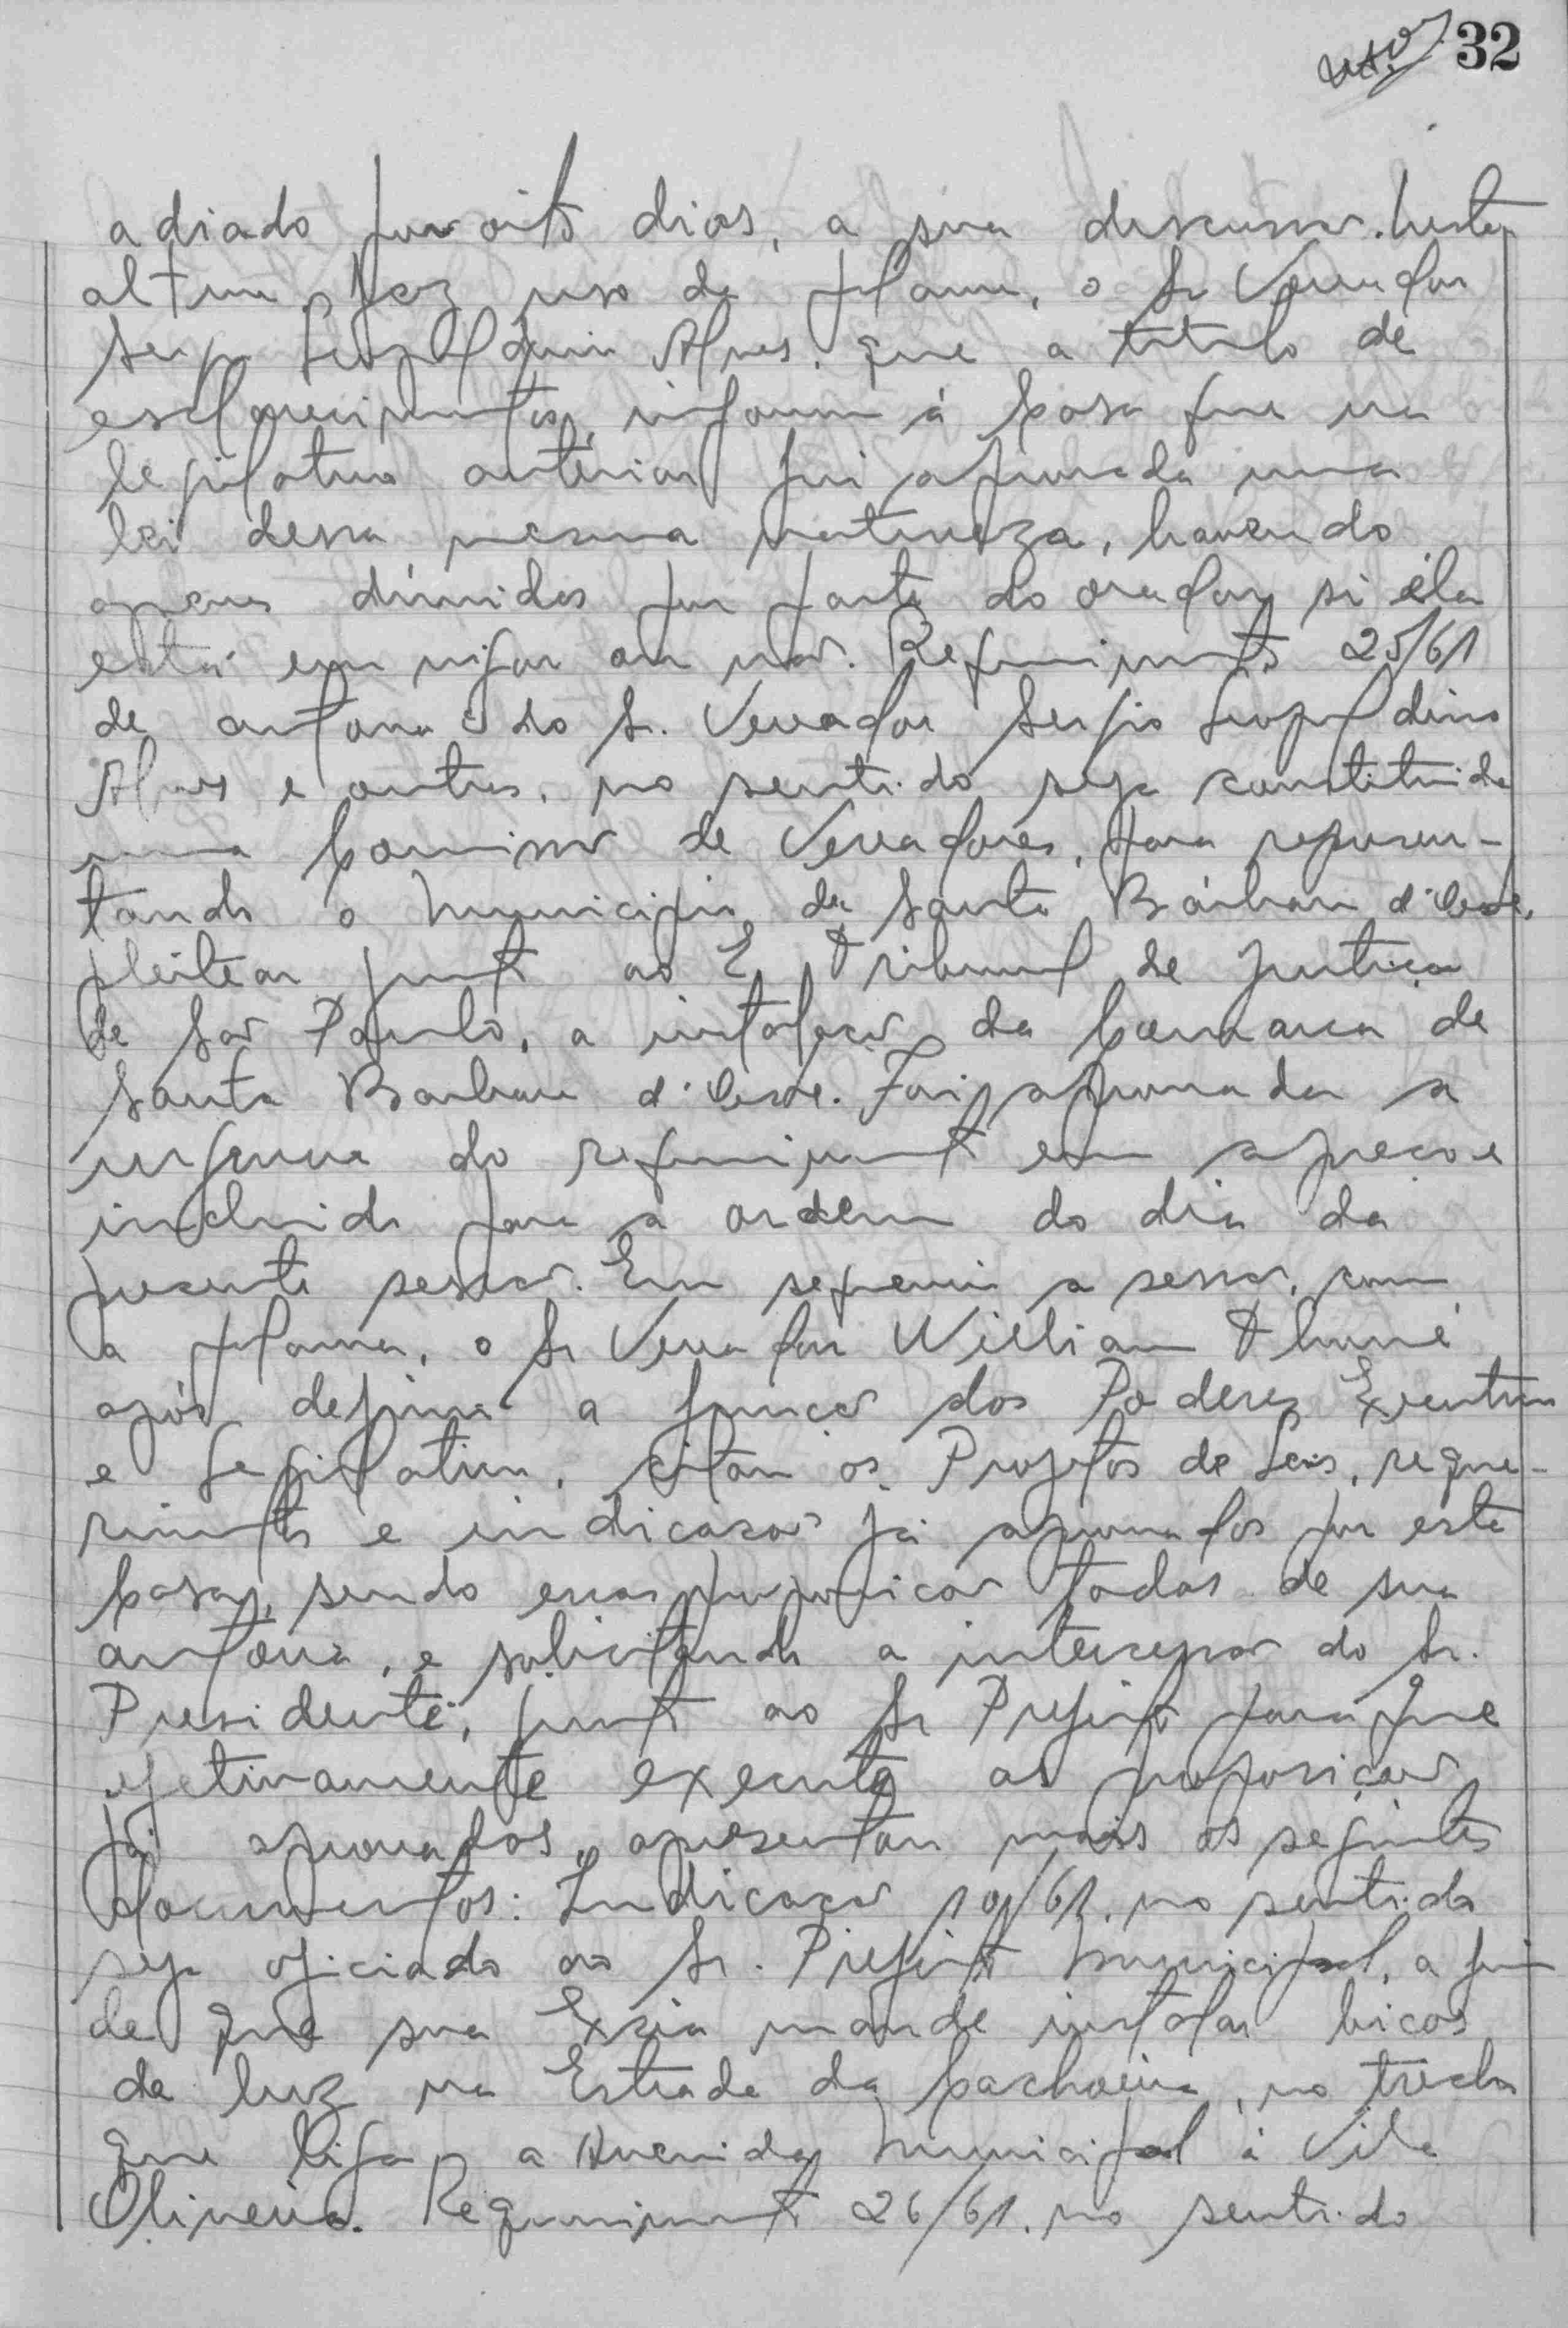 32
adiado por oito dias, a sua discussão. Nesta
altura, faz uso da palavra, o Sr Vereador
Sergio Leopoldino Alves, que a titulo de
esclarecimentos, informa á Casa que na
legislatura anterior foi aprovada uma
lei dessa mesma natureza, havendo
apenas dúvidas por parte do orador si éla
está em vigor ou não. Requerimento 25/61
de autoria do Sr. Vereador Sergio Leopoldino
Alves e outros, no sentido seja constituida
uma Comissão de Vereadores, para represen-
tando o Municipio de Santa Bárbara d'Oeste,
pleitear junto ao E. Tribunal de Justiça
de São Paulo, a instalação da Comarca de
Santa Barbara d'Oeste. Foi aprovada a
urgencia do requerimento em apreço e
incluido para a ordem do dia da
presente sessão. Em sequencia a sessão, com
a palavra, o Sr Vereador William
após definir a função dos Poderes Executivo
e Legislativo, citou os Projetos de Leis, reque-
rimentos e indicações já aprovados por esta
Casa, sendo essas proposições todas de sua
autoria, e solicitando a intercessão do Sr.
Presidente, junto ao Sr Prefeito para que
efetivamente execute as proposições
já aprovados, apresentou mais os seguintes
documentos: Indicação 10/61, no sentido
seja oficiado ao Sr. Prefeito Municipal, a fim
de que sua Excia mande instalar bicos
de luz na Estrada da Cachoeira, no trecho
que liga a Avenida Municipal á Vila
Oliveira. Requerimento 26/61, no sentido